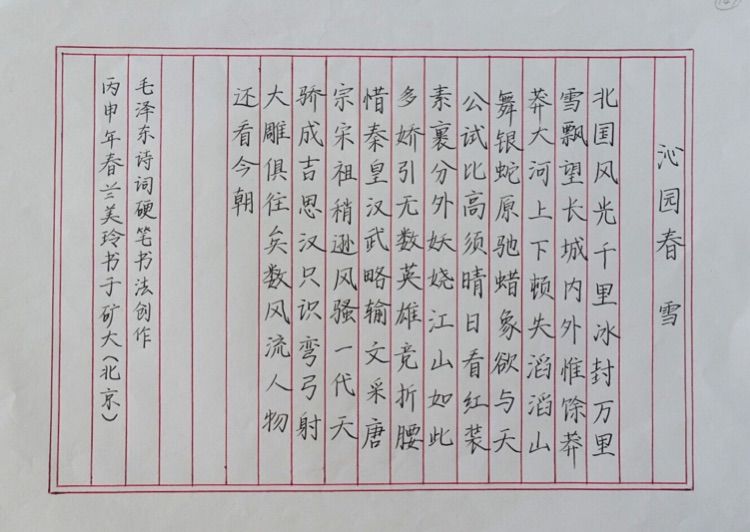 沁园春 雪
北国风光千里冰封万里
雪飘望长城内外惟馀莽
莽大河上下顿失滔滔山
舞银蛇原驰蜡象欲与天
公试比高须晴日看红装
素裹分外妖娆江山如此
多娇引无数英雄竞折腰
惜秦皇汉武略输文采唐
宗宋祖稍逊风骚一代天
骄成吉思汉只识弯弓射
大雕俱往矣数风流人物
还看今朝
毛泽东诗词硬笔书法创作
丙申年春兰美玲书于矿大(北京)